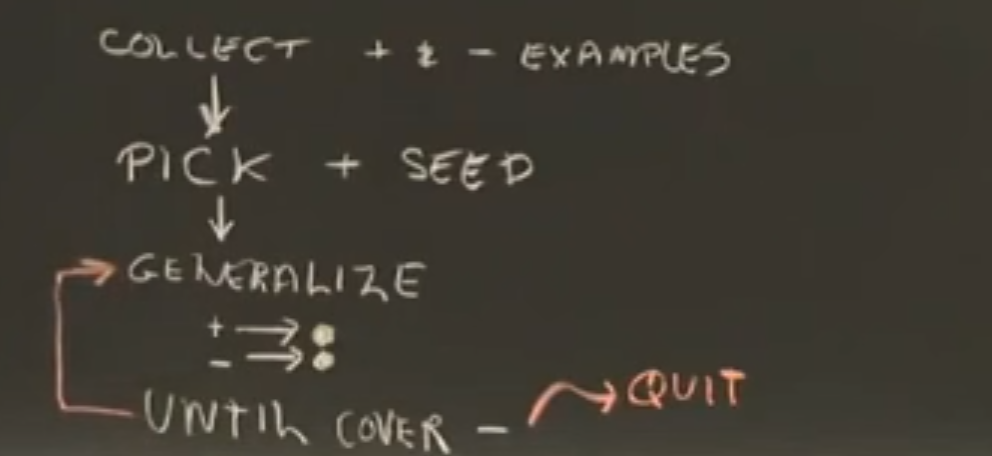 COLLECT + & - EXAMPLES
PICK + SEED
GENERALIZE
+ →
- →
UNTIL COVER - QUIT